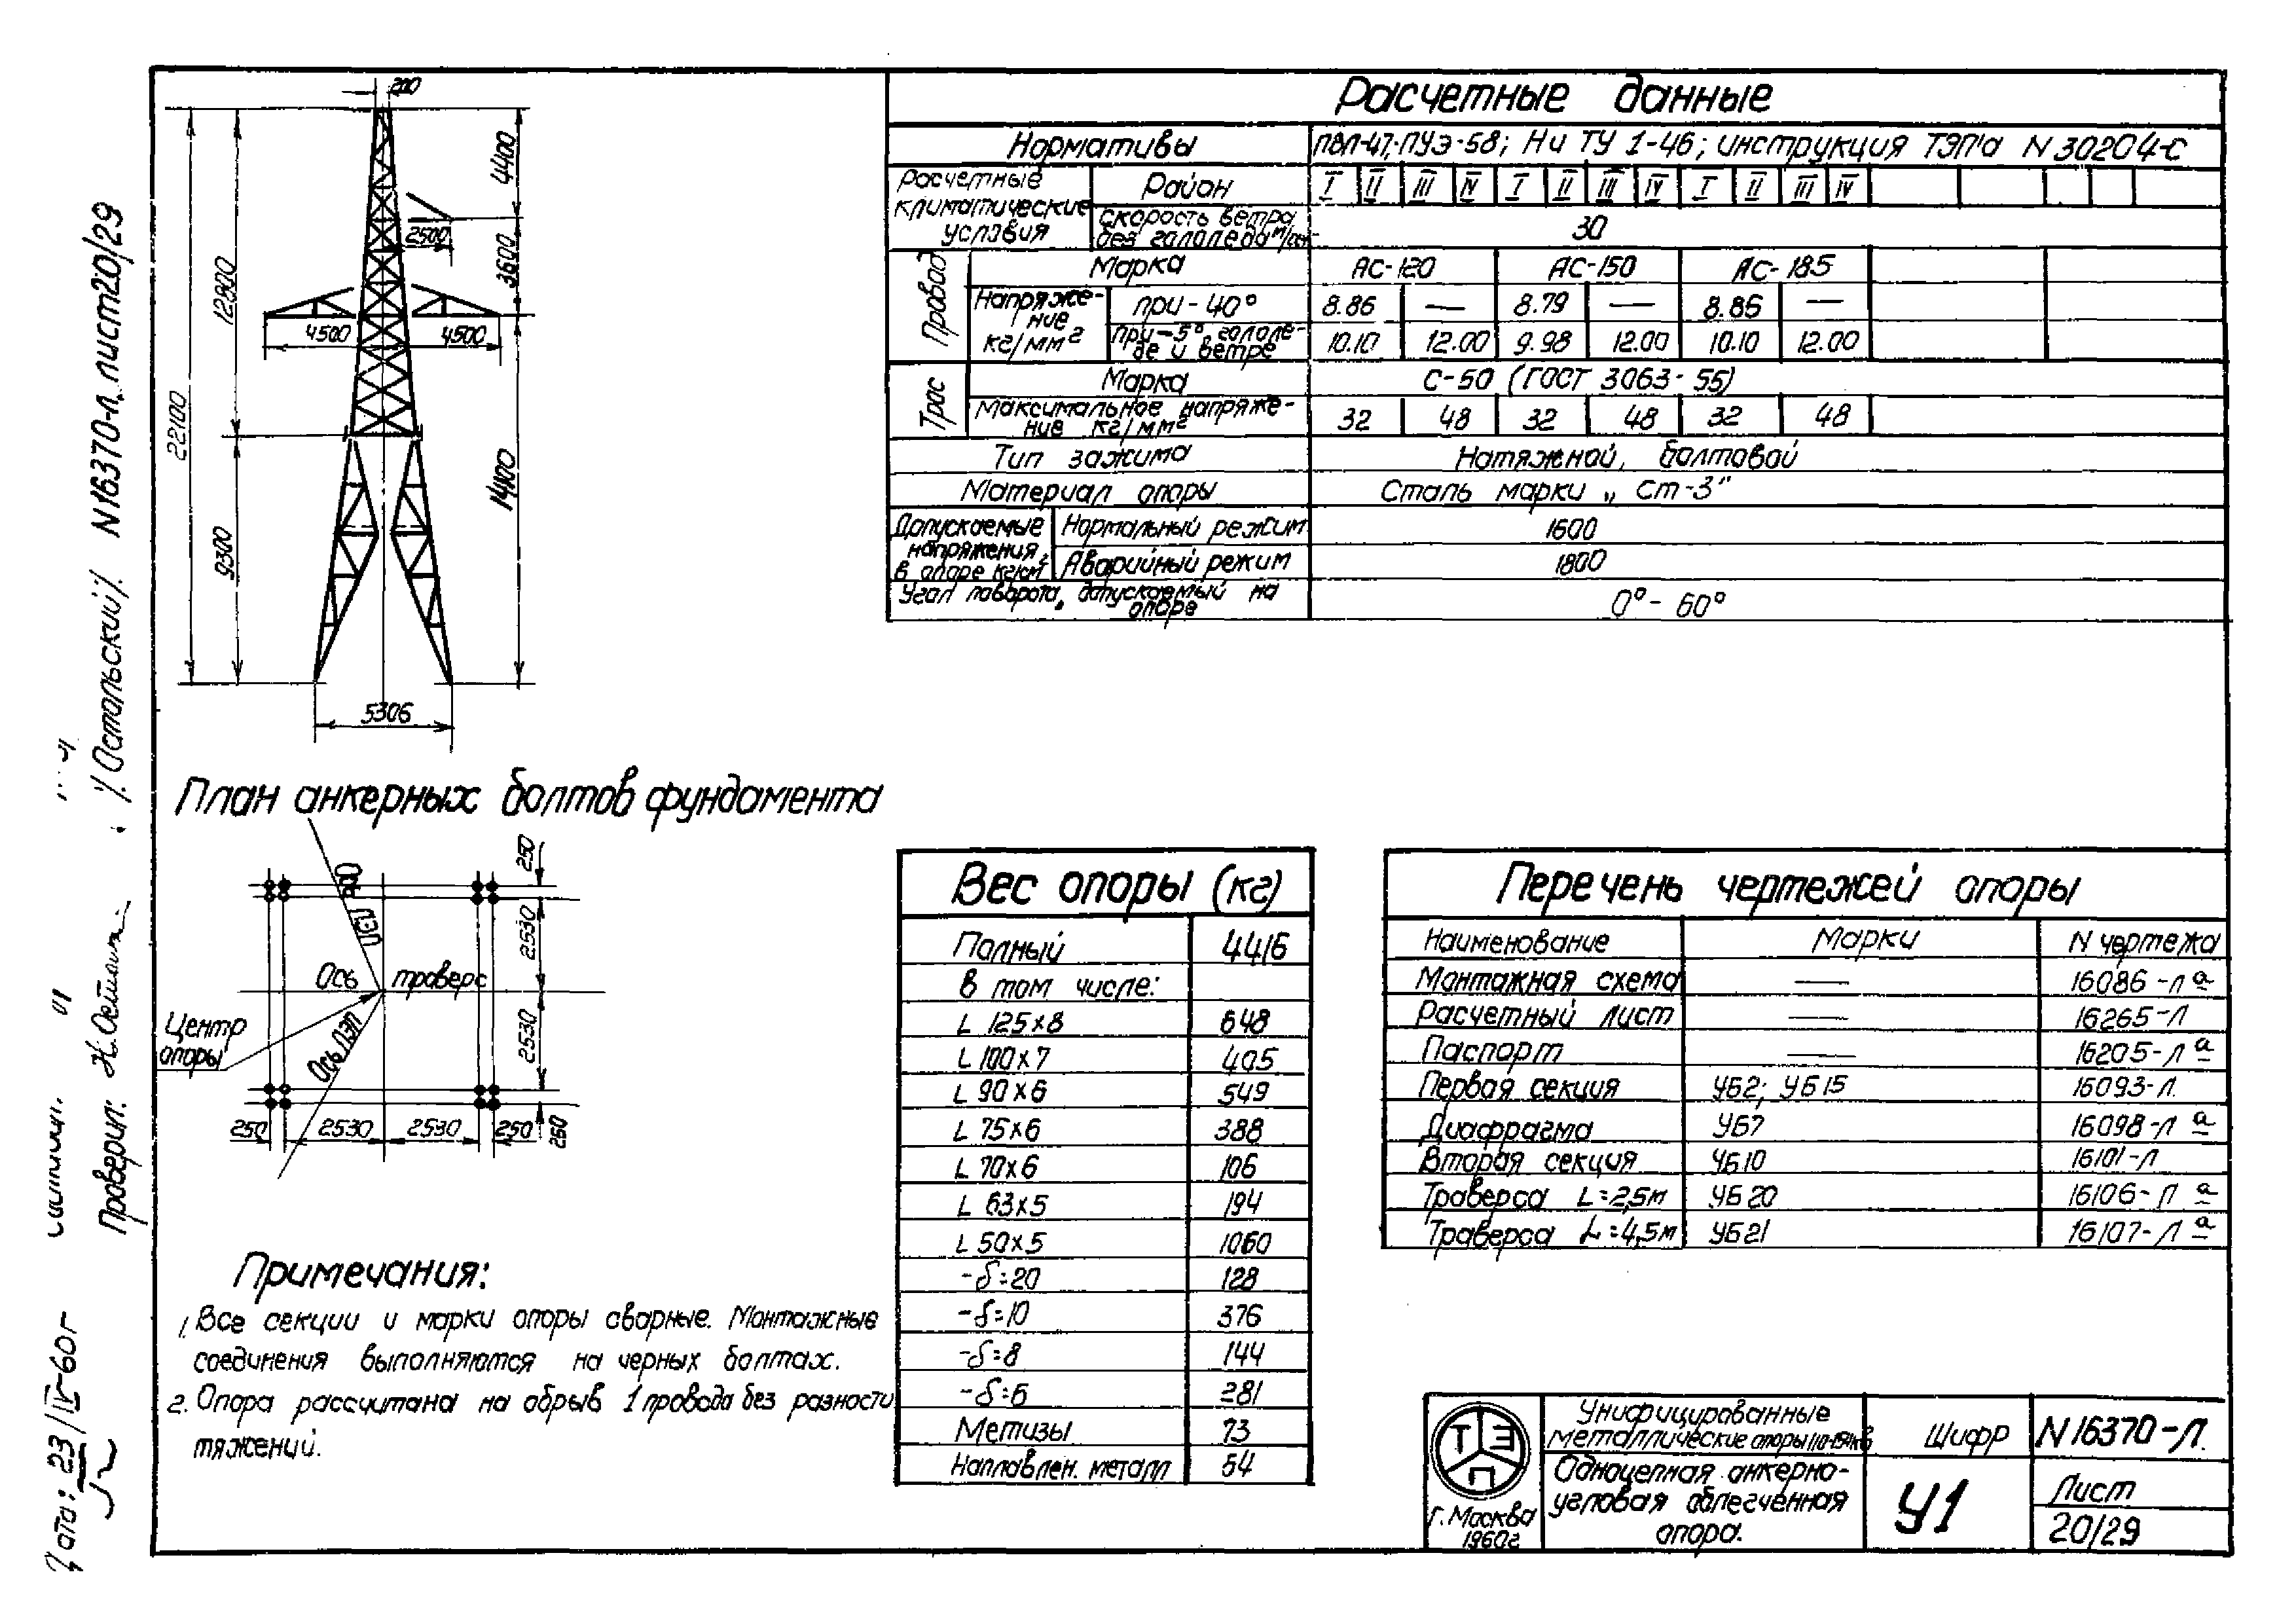 200
4400
2500
3600
12800
4500
4500
22100
14100
9300
5306
Расчетные данные
Нормативы ПВЛ-47, ПУЭ-58; Н и ТУ 1-46; инструкция ТЭП'а N 30204-С
Расчетные климатические условия
Район I II III IV I II III IV I II III IV
Скорость ветра без гололеда м/сек 30
Провод
Марка АС-120 АС-150 АС-185
Напряжение кг/мм²
при -40° 8.86 — 8.79 — 8.85 —
При -5° гололеде и ветре 10.10 12.00 9.98 12.00 10.10 12.00
Трос
Марка С-50 (ГОСТ 3063-55)
Максимальное напряжение кг/мм² 32 48 32 48 32 48
Тип зажима Натяжной, болтовой
Материал опоры Сталь марки „Ст-3"
Допускаемые напряжения в опоре кг/см²
Нормальный режим 1600
Аварийный режим 1800
Угол поворота, допускаемый на опоре 0°- 60°
План анкерных болтов фундамента
250
2530
2530
250
Ось ЛЭП
Ось траверс
Центр опоры
Ось ЛЭП
250 2530 2530 250
Вес опоры (кг)
Полный 4416
в том числе:
L 125×8 648
L 100×7 405
L 90×6 549
L 75×6 388
L 70×6 106
L 63×5 194
L 50×5 1060
-δ=20 128
-δ=10 376
-δ=8 144
-δ=6 281
Метизы 73
Наплавлен. металл 64
Перечень чертежей опоры
Наименование Марки N чертежа
Монтажная схема — 16086-Л а
Расчетный лист — 16265-Л
Паспорт — 16205-Л а
Первая секция УБ2; УБ15 16093-Л.
Диафрагма УБ7 16098-Л а
Вторая секция УБ10 16101-Л
Траверса L=2,5м УБ20 16106-Л а
Траверса L=4,5м УБ21 16107-Л а
Примечания:
1. Все секции и марки опоры сварные. Монтажные
соединения выполняются на черных болтах.
2. Опора рассчитана на обрыв 1 провода без разности
тяжений.
ТЭП
г. Москва
1960г
Унифицированные
металлические опоры
Одноцепная анкерно-
угловая облегченная
опора.
Шифр
У1
N 16370-Л.
Лист
20/29
N16370-Л, лист 20/29
Проверил:
/Остольский/.
Дата: 23/IV-60г